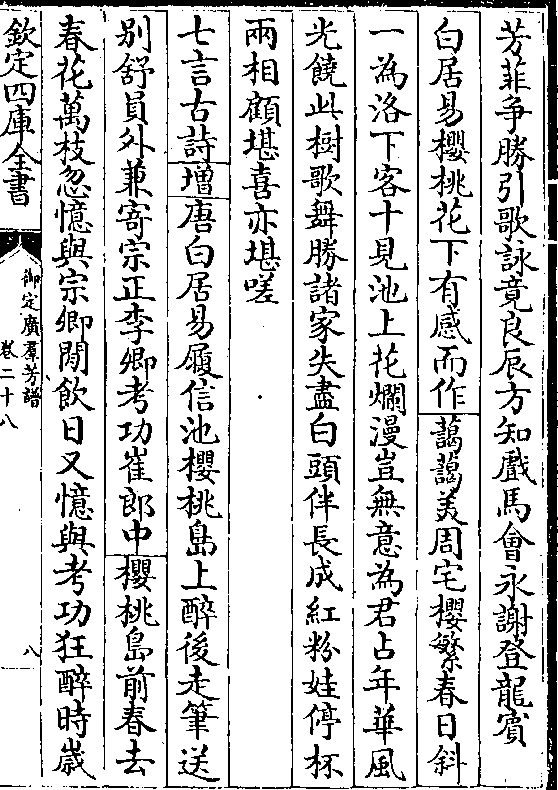 芳菲爭勝引歌詠竟良辰方知戲馬會永謝登龍賓
白居易櫻桃花下有感而作藹藹美周宅櫻繁春日斜
一為洛下客十見池上花爛漫豈無意為君占年華風
光饒此樹歌舞勝諸家失盡白頭伴長成紅粉娃停杯
兩相顧堪喜亦堪嗟
七言古詩增唐白居易履信池櫻桃島上醉後走筆送
别舒員外兼寄宗正李卿考功崔郎中櫻桃島前春去
春花萬枝忽憶與宗卿閒飲日又憶與考功狂醉時歲
欽定四庫全書
御定廣羣芳譜
卷二十八
八